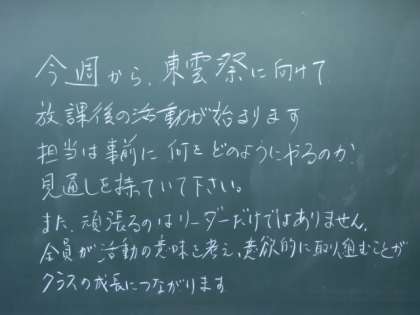 今週から、東雲祭に向けて
放課後の活動が始まります
担当は事前に何をどのようにやるのか、
見通しを持ていて下さい。
また、頑張るのはリーダーだけではありません。
全員が活動の意味を考え、意欲的に取り組むことが
クラスの成長につながります